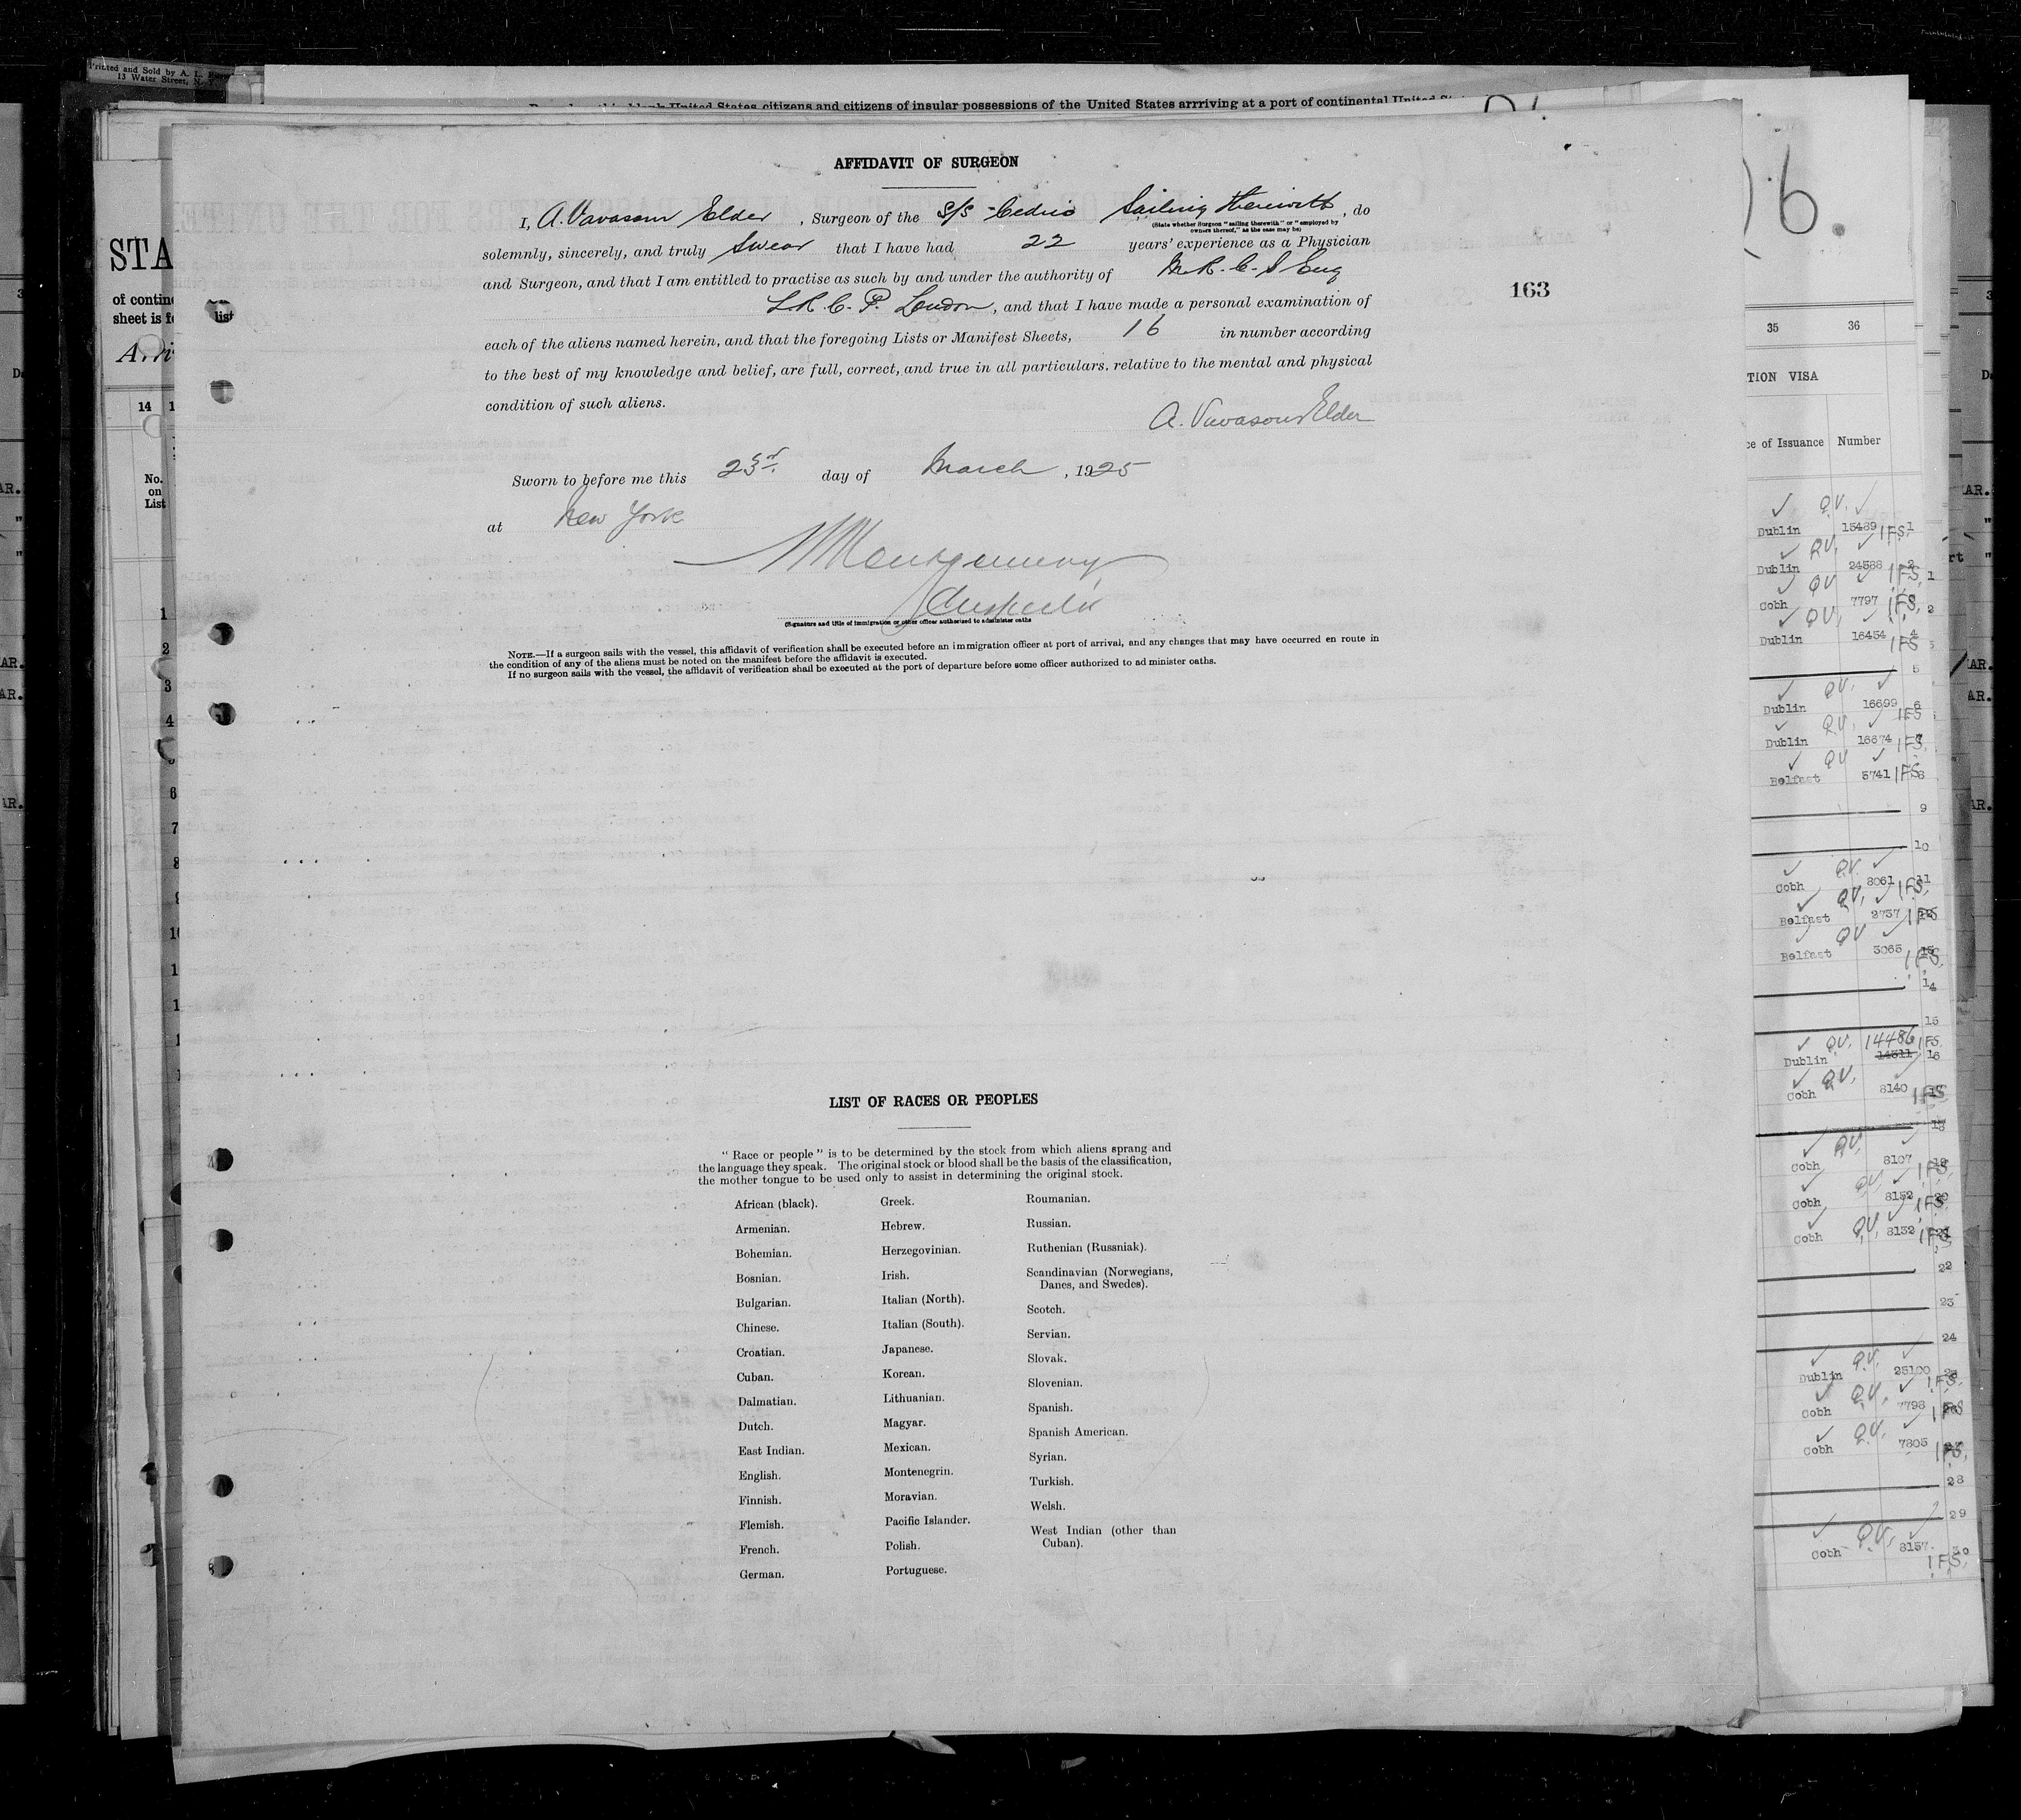 Printed and Sold by A. L.
13 Water Street, N. Y.
United States citizens and citizens of insular possessions of the United States arrriving at a port of continental United
AFFIDAVIT OF SURGEON
I, A. Vavasour Elder, Surgeon of the S/S Cedric Sailing Therewith, do
(State whether Surgeon "sailing therewith" or "employed by
owners thereof," as the case may be)
solemnly, sincerely, and truly Swear that I have had 22 years' experience as a Physician
and Surgeon, and that I am entitled to practise as such by and under the authority of M.R.C.S Eng
L.R.C.P. London, and that I have made a personal examination of
each of the aliens named herein, and that the foregoing Lists or Manifest Sheets, 16 in number according
to the best of my knowledge and belief, are full, correct, and true in all particulars, relative to the mental and physical
condition of such aliens.
A. Vavasour Elder
Sworn to before me this 23rd day of March, 1925
at New York
Montgomery
Inspector
(Signature and title of immigration or other officer authorized to administer oaths
NOTE.—If a surgeon sails with the vessel, this affidavit of verification shall be executed before an immigration officer at port of arrival, and any changes that may have occurred en route in
the condition of any of the aliens must be noted on the manifest before the affidavit is executed.
If no surgeon sails with the vessel, the affidavit of verification shall be executed at the port of departure before some officer authorized to ad minister oaths.
163
LIST OF RACES OR PEOPLES
" Race or people " is to be determined by the stock from which aliens sprang and
the language they speak. The original stock or blood shall be the basis of the classification,
the mother tongue to be used only to assist in determining the original stock.
African (black).
Armenian.
Bohemian.
Bosnian.
Bulgarian.
Chinese.
Croatian.
Cuban.
Dalmatian.
Dutch.
East Indian.
English.
Finnish.
Flemish.
French.
German.
Greek.
Hebrew.
Herzegovinian.
Irish.
Italian (North).
Italian (South).
Japanese.
Korean.
Lithuanian.
Magyar.
Mexican.
Montenegrin.
Moravian.
Pacific Islander.
Polish.
Portuguese.
Roumanian.
Russian.
Ruthenian (Russniak).
Scandinavian (Norwegians,
Danes, and Swedes).
Scotch.
Servian.
Slovak.
Slovenian.
Spanish.
Spanish American.
Syrian.
Turkish.
Welsh.
West Indian (other than
Cuban).
STA
of contin
sheet is list
14
No.
on
List
1
2
3
4
6
7
8
9
35 36
TION VISA
ce of Issuance Number
Dublin Q.V. 15489 IFS 1
Dublin Q.V. 24588 IFS 2
Cobh Q.V. 7797 IFS
Dublin Q.V. 16454 IFS 4
5
Dublin Q.V. 16699 IFS 6
Dublin Q.V. 16674 IFS 7
Belfast Q.V. 5741 IFS 8
9
10
Cobh Q.V. 8061 IFS 11
Belfast Q.V. 2737 IFS
Belfast Q.V. 3065 IFS 13
14
15
Dublin Q.V. 14486 IFS 16
Cobh Q.V. 8140 IFS 17
18
Cobh Q.V. 8107 IFS 19
Cobh Q.V. 8152 IFS 20
Cobh Q.V. 8132 IFS 21
22
23
24
Dublin Q.V. 25100 IFS
Cobh Q.V. 7798 IFS 26
Cobh Q.V. 7805 IFS
28
29
Cobh Q.V. 8157 IFS 30